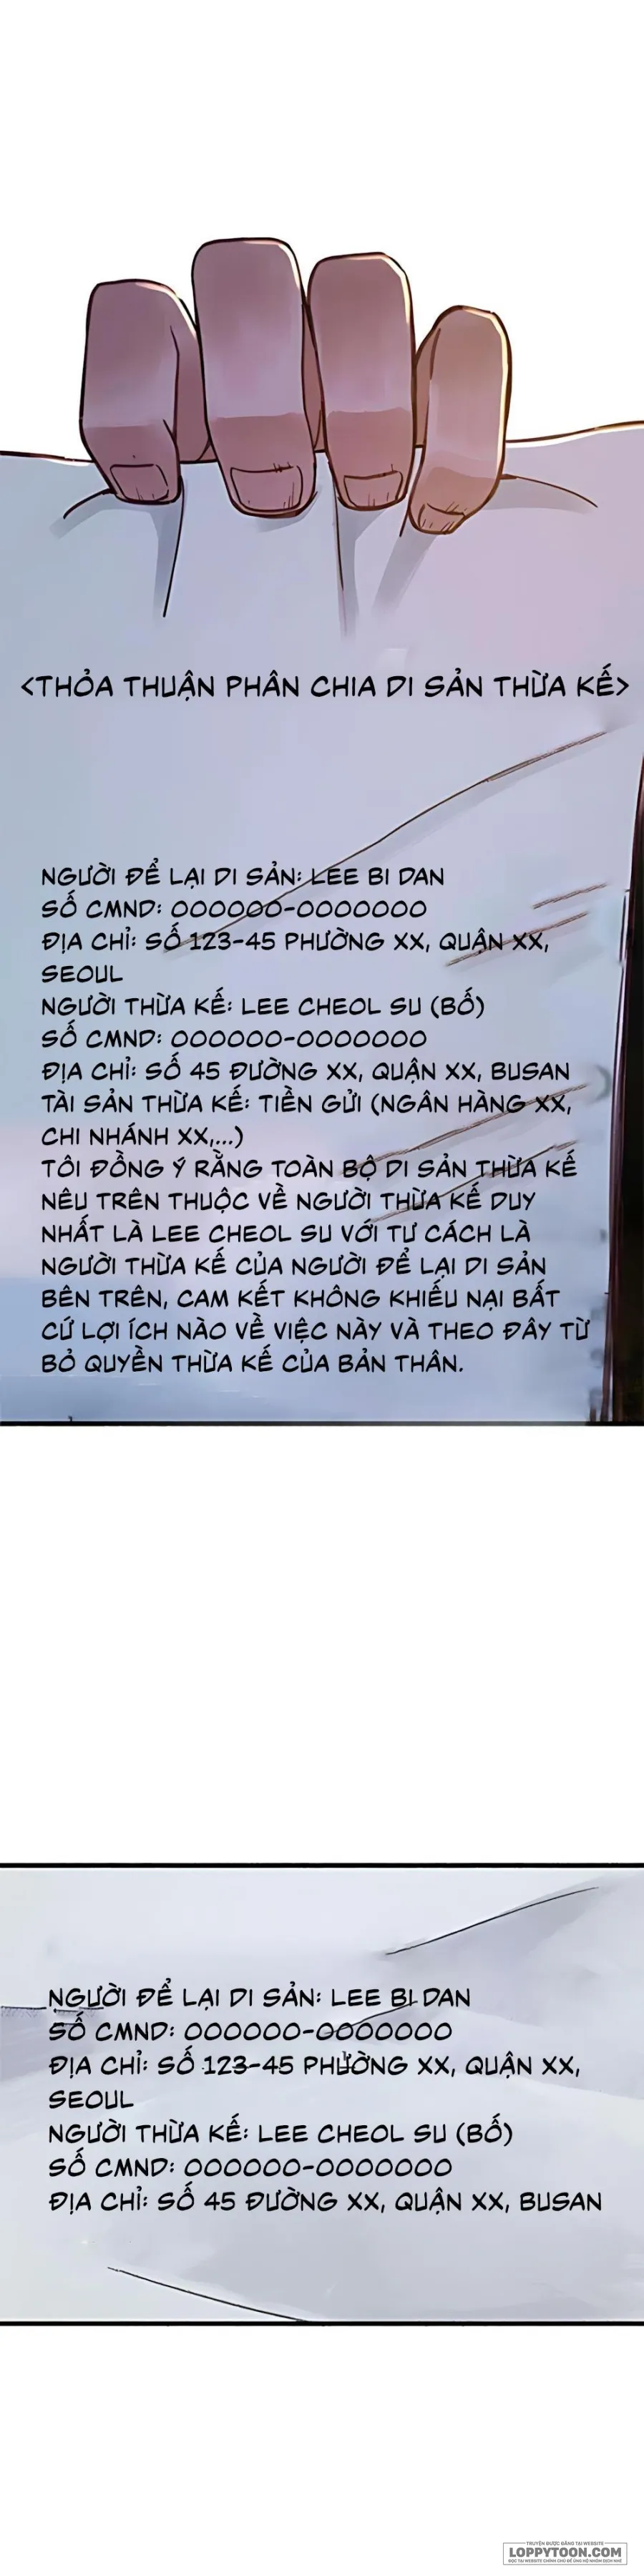 <THỎA THUẬN PHÂN CHIA DI SẢN THỪA KẾ>
NGƯỜI ĐỂ LẠI DI SẢN: LEE BI DAN
SỐ CMND: OOOOOO-OOOOOOO
ĐỊA CHỈ: SỐ 123-45 PHƯỜNG XX, QUẬN XX,
SEOUL
NGƯỜI THỪA KẾ: LEE CHEOL SU (BỐ)
SỐ CMND: OOOOOO-OOOOOOO
ĐỊA CHỈ: SỐ 45 ĐƯỜNG XX, QUẬN XX, BUSAN
TÀI SẢN THỪA KẾ: TIỀN GỬI (NGÂN HÀNG XX,
CHI NHÁNH XX,...)
TÔI ĐỒNG Ý RẰNG TOÀN BỘ DI SẢN THỪA KẾ
NÊU TRÊN THUỘC VỀ NGƯỜI THỪA KẾ DUY
NHẤT LÀ LEE CHEOL SU VỚI TƯ CÁCH LÀ
NGƯỜI THỪA KẾ CỦA NGƯỜI ĐỂ LẠI DI SẢN
BÊN TRÊN, CAM KẾT KHÔNG KHIẾU NẠI BẤT
CỨ LỢI ÍCH NÀO VỀ VIỆC NÀY VÀ THEO ĐÂY TỪ
BỎ QUYỀN THỪA KẾ CỦA BẢN THÂN.
NGƯỜI ĐỂ LẠI DI SẢN: LEE BI DAN
SỐ CMND: OOOOOO-OOOOOOO
ĐỊA CHỈ: SỐ 123-45 PHƯỜNG XX, QUẬN XX,
SEOUL
NGƯỜI THỪA KẾ: LEE CHEOL SU (BỐ)
SỐ CMND: OOOOOO-OOOOOOO
ĐỊA CHỈ: SỐ 45 ĐƯỜNG XX, QUẬN XX, BUSAN
TRUYỆN ĐƯỢC ĐĂNG TẠI WEBSITE
LOPPYTOON.COM
ĐỌC TẠI WEBSITE CHÍNH CHỦ ĐỂ ỦNG HỘ NHÓM DỊCH NHÉ